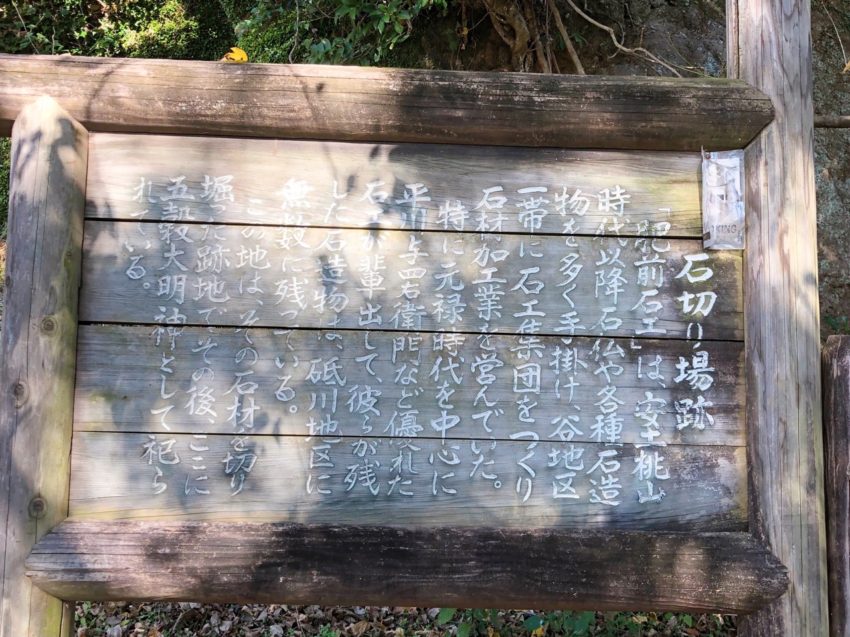 石切り場跡
「肥前石工」は、安土桃山
時代以降石仏や各種石造
物を多く手掛け、谷地区
一帯に石工集団をつくり
石材加工業を営んでいた。
特に元禄時代を中心に
平川与四右衛門など優れた
石工が輩出して、彼らが残
した石造物は、砥川地区に
無数に残っている。
この地は、その石材を切り
堀った跡地でその後、ここに
五穀大明神として祀ら
れている。
KING